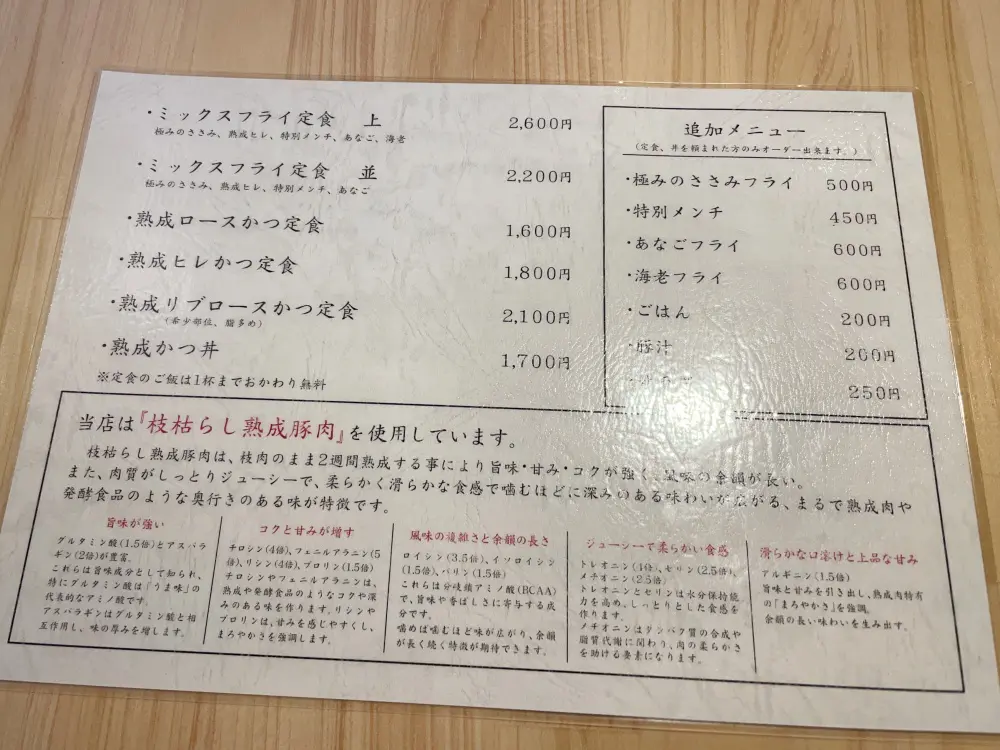 ・ミックスフライ定食　上　2,600円
極みのささみ、熟成ヒレ、特別メンチ、あなご、海老
・ミックスフライ定食　並　2,200円
極みのささみ、熟成ヒレ、特別メンチ、あなご
・熟成ロースかつ定食　1,600円
・熟成ヒレかつ定食　1,800円
・熟成リブロースかつ定食　2,100円
(希少部位、脂多め)
・熟成かつ丼　1,700円
※定食のご飯は1杯までおかわり無料
追加メニュー
(定食、丼を頼まれた方のみオーダー出来ます。)
・極みのささみフライ　500円
・特別メンチ　450円
・あなごフライ　600円
・海老フライ　600円
・ごはん　200円
・豚汁　200円
250円
当店は『枝枯らし熟成豚肉』を使用しています。
枝枯らし熟成豚肉は、枝肉のまま2週間熟成する事により旨味・甘み・コクが強く、風味の余韻が長い。
また、肉質がしっとりジューシーで、柔らかく滑らかな食感で噛むほどに深みのある味わいが広がる、まるで熟成肉や
発酵食品のような奥行きのある味が特徴です。
旨味が強い
グルタミン酸(1.5倍)とアスパラ
ギン(2倍)が豊富。
これらは旨味成分として知られ、
特にグルタミン酸は「うま味」の
代表的なアミノ酸です。
アスパラギンはグルタミン酸と相
互作用し、味の厚みを増します。
コクと甘みが増す
チロシン(4倍)、フェニルアラニン(5
倍)、リシン(4倍)、プロリン(1.5倍)
チロシンやフェニルアラニンは、
熟成や発酵食品のようなコクや深
みのある味を作ります。リシンや
プロリンは、甘みを感じやすくし、
まろやかさを強調します。
風味の複雑さと余韻の長さ
ロイシン(3.5倍)、イソロイシン
(1.5倍)、バリン(1.5倍)
これらは分岐鎖アミノ酸(BCAA)
で、旨味や香ばしさに寄与する成
分です。
噛めば噛むほど味が広がり、余韻
が長く続く特徴が期待できます。
ジューシーで柔らかい食感
トレオニン(4倍)、セリン(2.5倍)、
メチオニン(2.5倍)
トレオニンとセリンは水分保持能
力を高め、しっとりとした食感を
作ります。
メチオニンはタンパク質の合成や
脂質代謝に関わり、肉の柔らかさ
を助ける要素になります。
滑らかな口溶けと上品な甘み
アルギニン(1.5倍)
旨味と甘みを引き出し、熟成肉特有
の「まろやかさ」を強調。
余韻の長い味わいを生み出す。